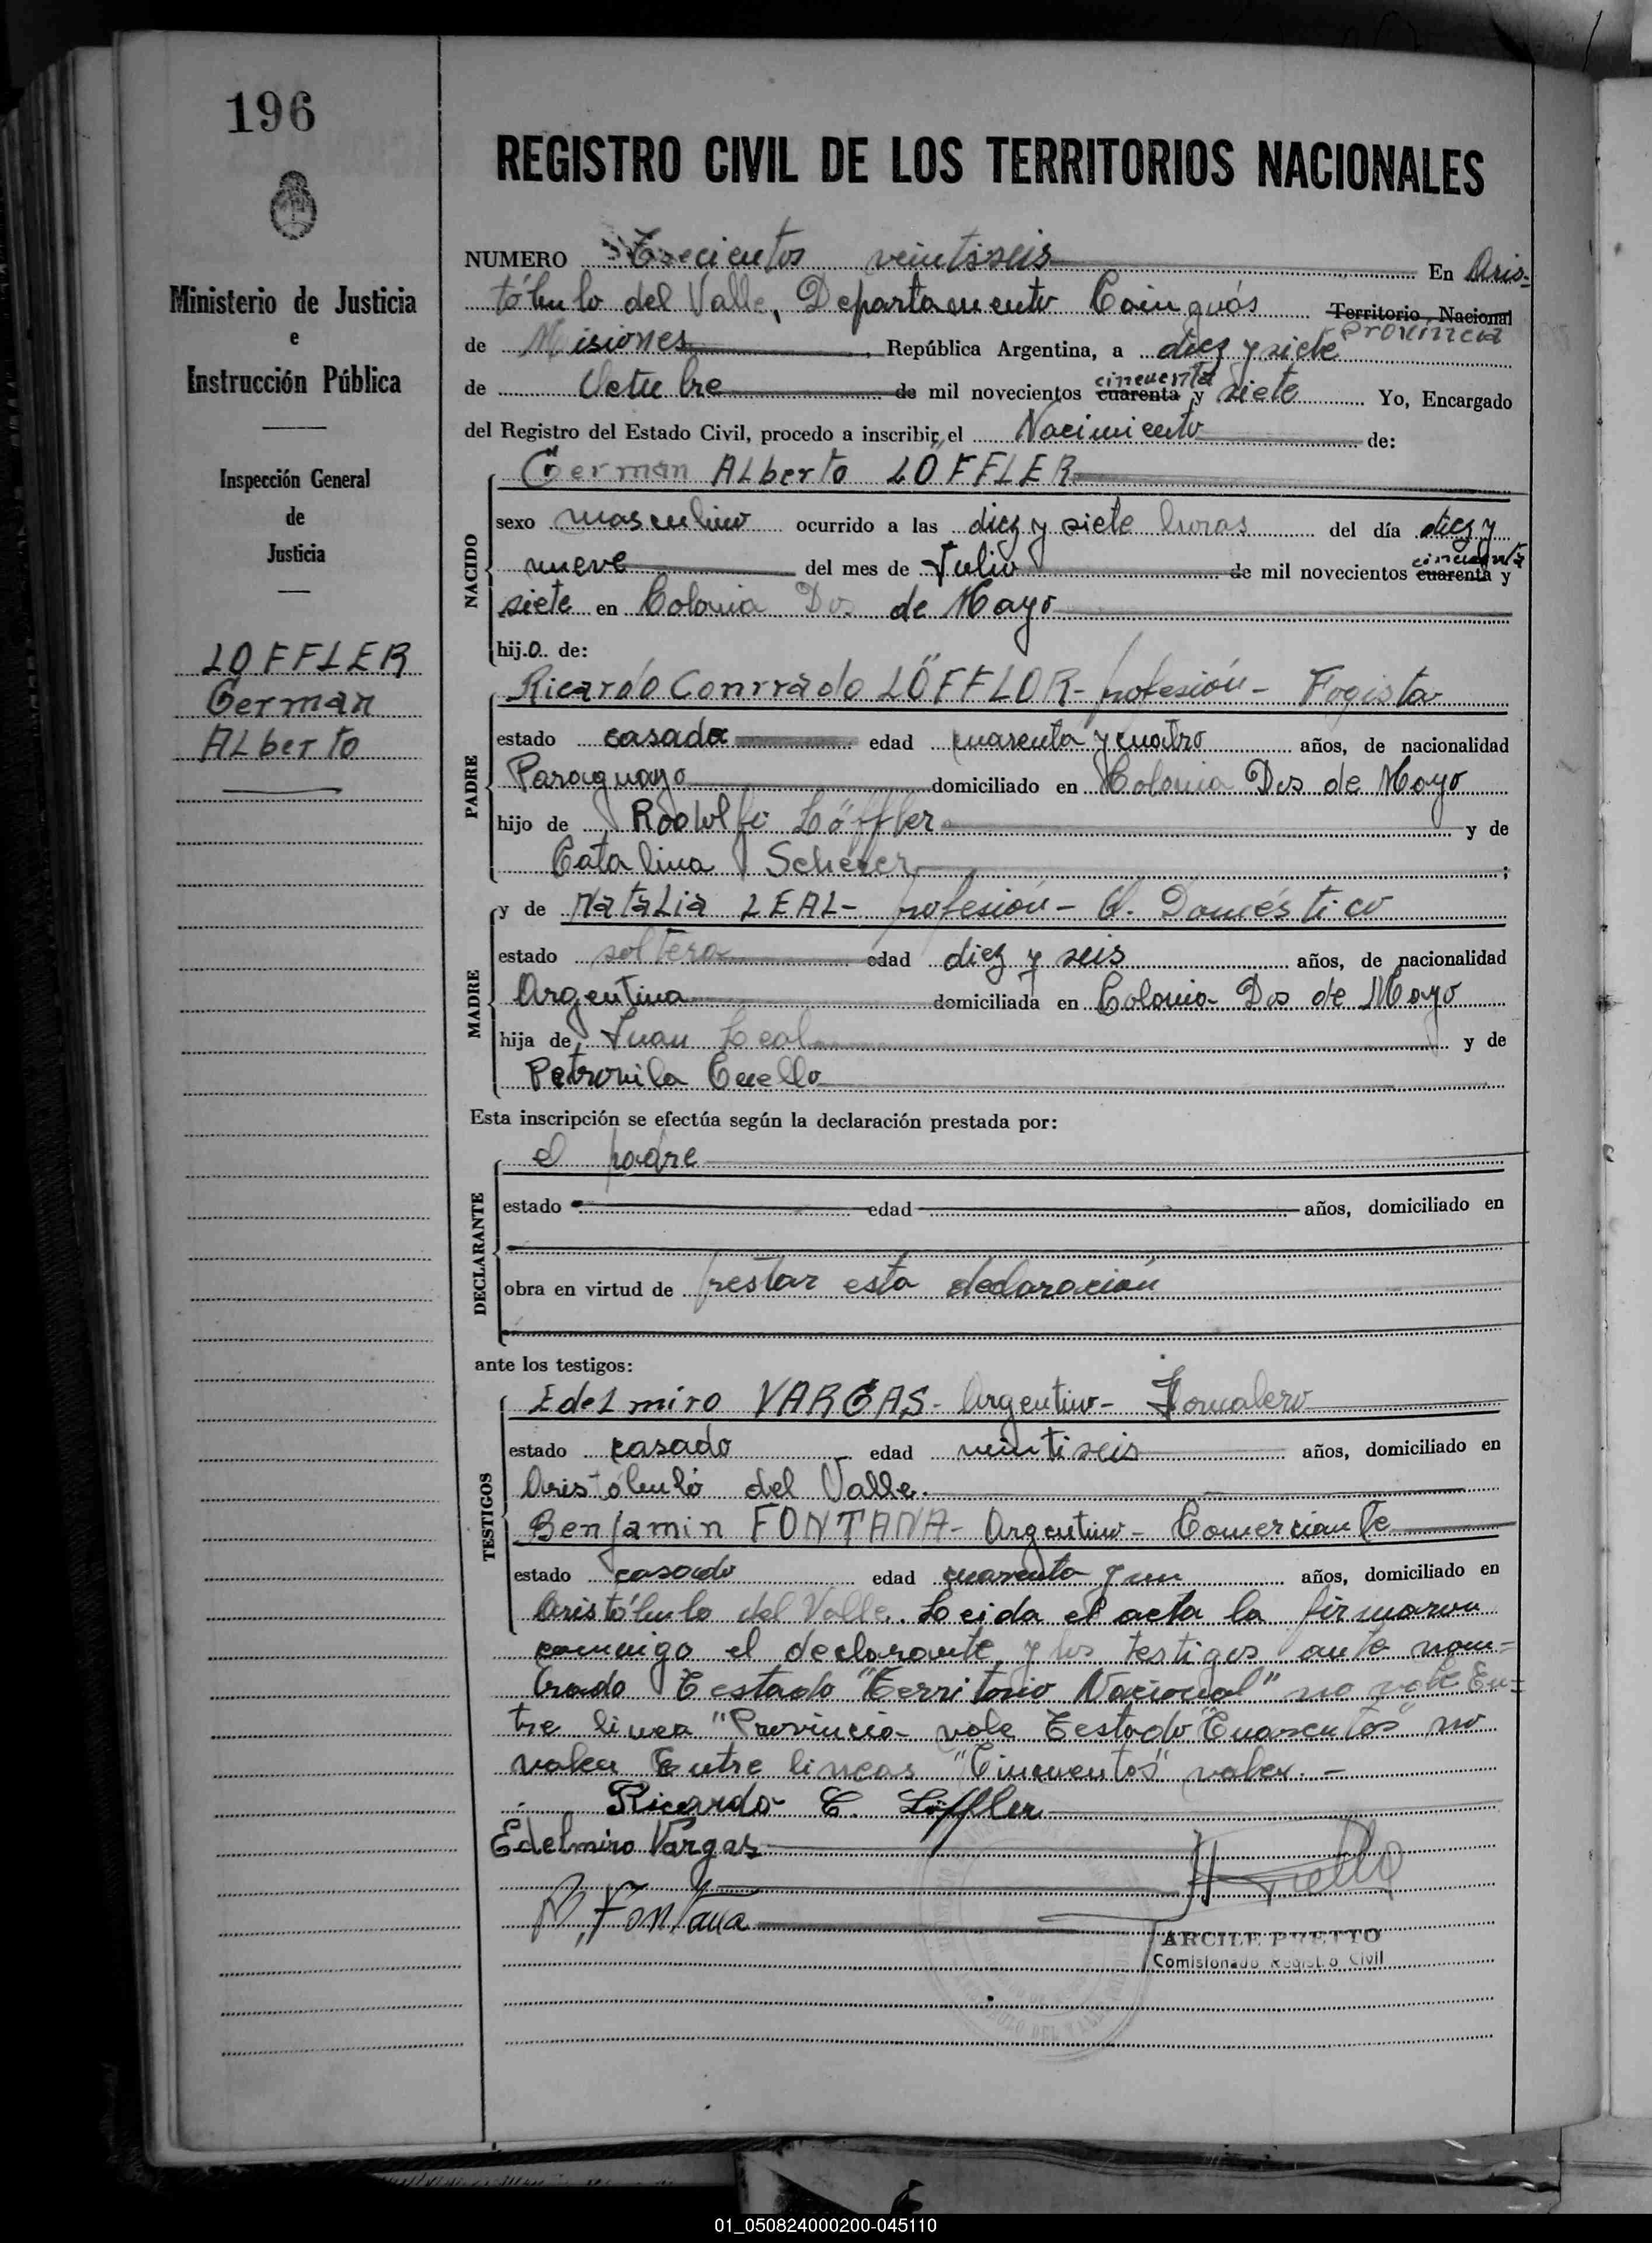 196
REGISTRO CIVIL DE LOS TERRITORIOS NACIONALES
Ministerio de Justicia
e
Instrucción Pública
Inspección General
de
Justicia
LÖFFLER
German
ALberto
NUMERO Trecientos veintiseis En Aris-
tóbulo del Valle, Departamento Cainguás Territorio Nacional
Provincia
de Misiones, República Argentina, a diez y siete
de Octubre de mil novecientos cuarenta y siete Yo, Encargado
cincuenta
del Registro del Estado Civil, procedo a inscribir el Nacimiento de:
German ALberto LÖFFLER
NACIDO
sexo masculino ocurrido a las diez y siete horas del día diez y
nueve del mes de Julio de mil novecientos cuarenta y
cincuenta
siete en Colonia Dos de Mayo
hij.o. de:
PADRE
Ricardo Conrrado LÖFFLOR- profesión- Fogista
estado casado edad cuarenta y cuatro años, de nacionalidad
Paraguayo domiciliado en Colonia Dos de Mayo
hijo de Rodolfo Löffler y de
Catalina Scherer ;
MADRE
y de NataLia LEAL- profesión- Q. Doméstico
estado soltera edad diez y seis años, de nacionalidad
Argentina domiciliada en Colonia Dos de Mayo
hija de Juan Leal y de
Petronila Cuello
Esta inscripción se efectúa según la declaración prestada por:
DECLARANTE
el padre
estado edad años, domiciliado en
obra en virtud de prestar esta declaración
ante los testigos:
TESTIGOS
EdeLmiro VARGAS- Argentino- Jornalero
estado casado edad veintiseis años, domiciliado en
Aristóbulo del Valle.
Benjamin FONTANA- Argentino- Comerciante
estado casado edad cuarenta y un años, domiciliado en
Aristóbulo del Valle. Leida el acta la firmaron
conmigo el declarante y los testigos ante nom=
brado Testado "Territorio Nacional" no vale En=
tre linea "Provincia- vale Testado "Cuarentas" no
valen Entre lineas "Cincuentas" valen.-
Ricardo C. Löffler
Edelmiro Vargas
B. Fontana
ARCILE PUETTO
Comisionado Registro Civil
01_050824000200-045110